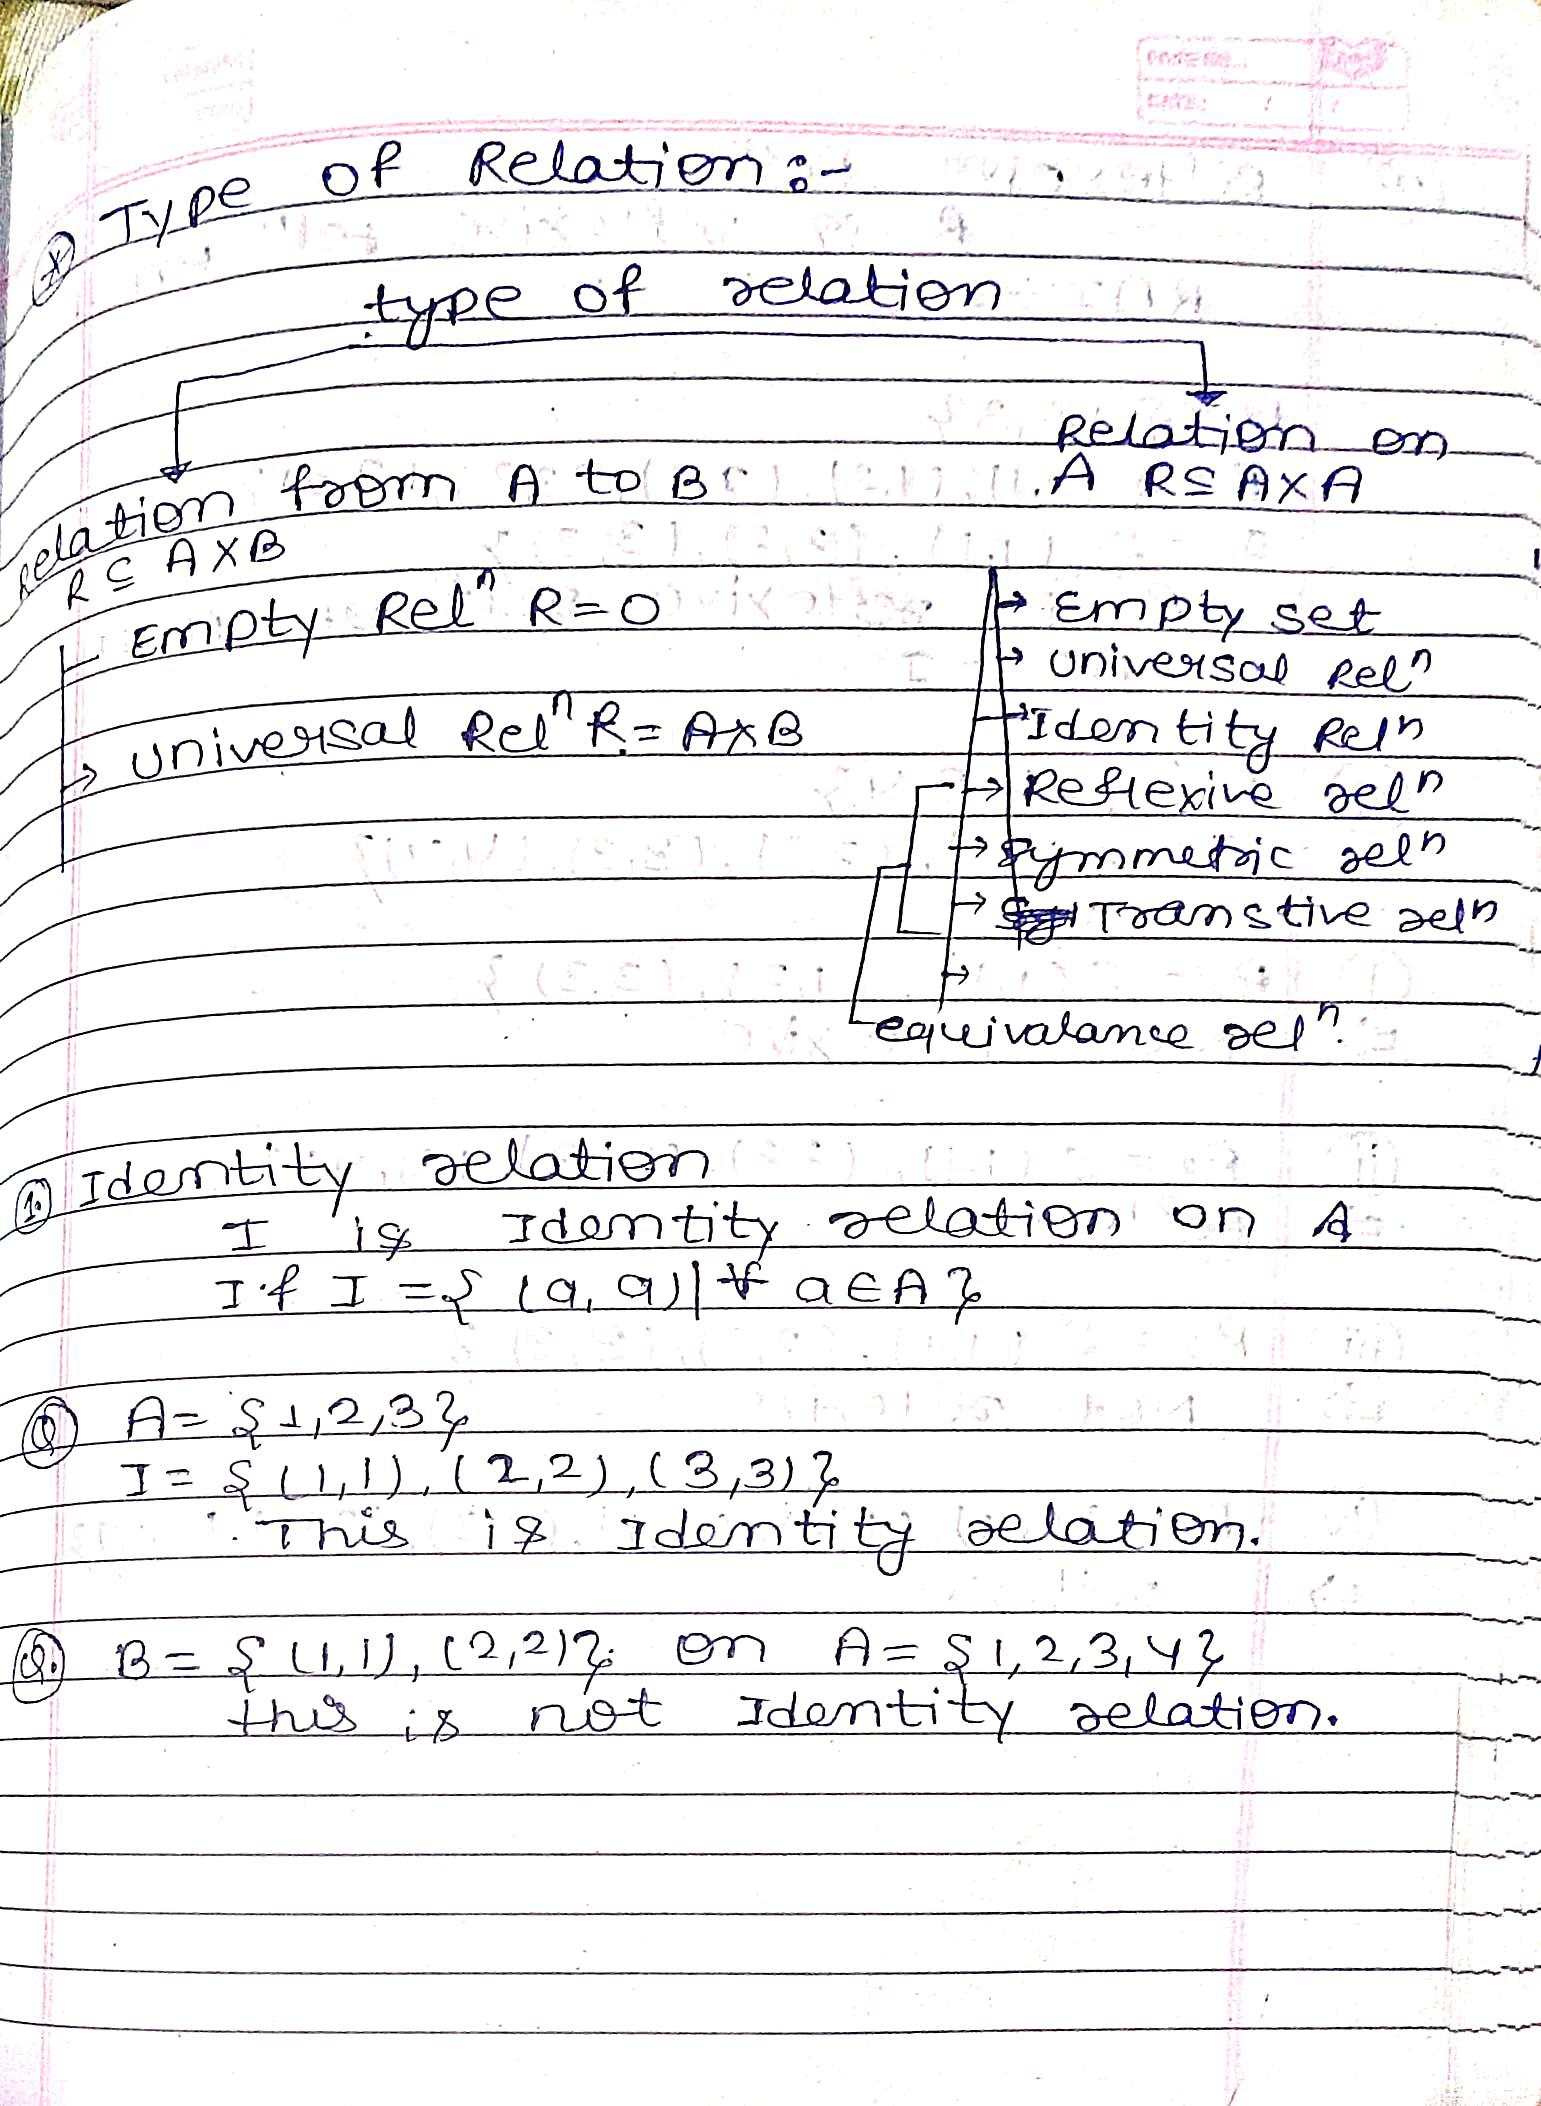 Type of Relation :-
type of relation
Relation from A to B
R ⊆ A X B
Empty Relⁿ R = O
universal Relⁿ R = A×B
Relation on
A R ⊆ A X A
Empty set
universal Relⁿ
Identity Relⁿ
Reflexive relⁿ
Symmetric relⁿ
Transtive relⁿ
equivalance relⁿ.
1. Identity relation
I is Identity relation on A
If I = { (a, a) | ∀ a ∈ A }
Q A = {1,2,3}
I = {(1,1), (2,2), (3,3)}
This is Identity relation.
Q. B = {(1,1), (2,2)} on A = {1,2,3,4}
this is not Identity relation.